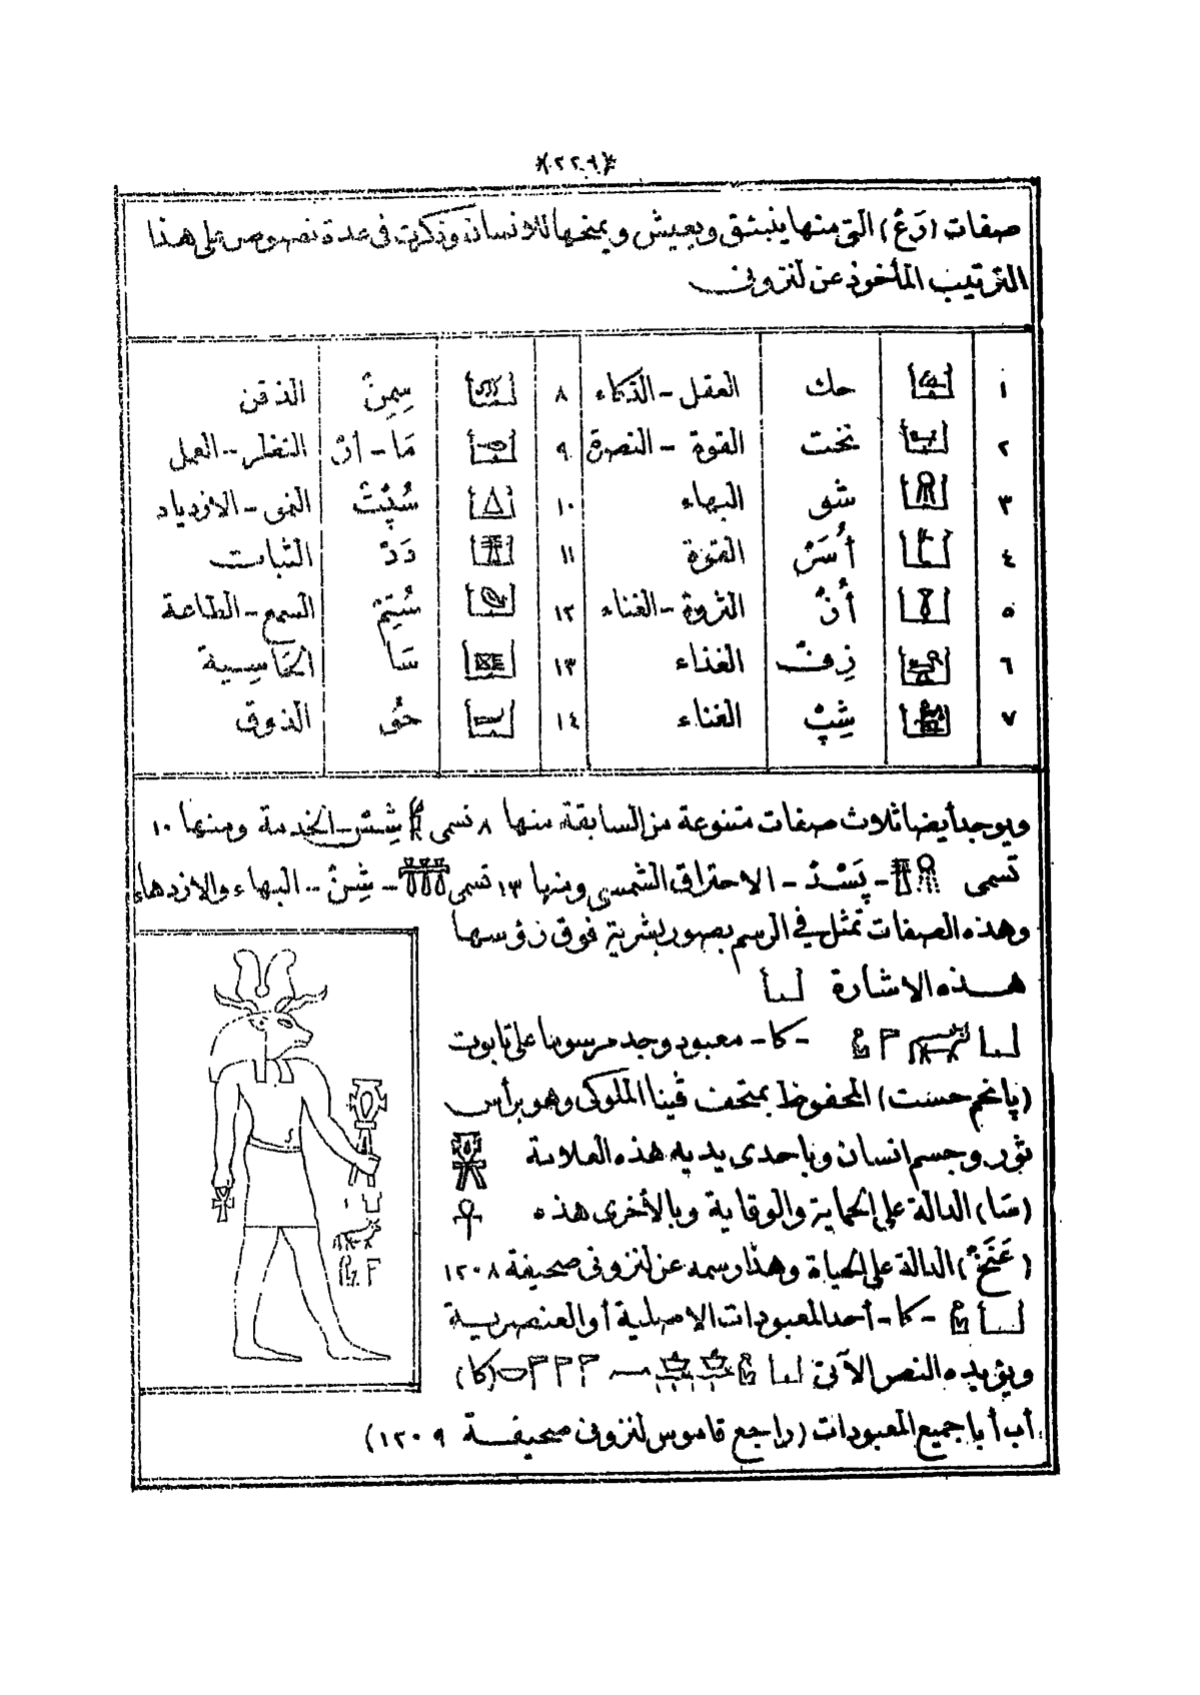 *(٢٢٩)*
صفات (رَعْ) التى منها ينبثق ويعيش و يمنحها للانسان وذكرت فى عدة نصوص على هذا
الترتيب المأخوذ عن لنزونى
١ حك العقل - الذكاء ٨ سِمِنْ الذقن
٢ نخت القوة - النصرة ٩ مَا - انْ النظر - العمل
٣ شو البهاء ١٠ سُپْتْ النمو - الازدياد
٤ أُسَرْ القوة ١١ دَدْ الثبات
٥ أُنْ الثروة - الغناء ١٢ سُتِمْ السمع - الطاعة
٦ زِفْ الغذاء ١٣ سَا الحَاسِية
٧ شِپْ الغناء ١٤ حُى الذوق
ويوجد أيضا ثلاث صفات متنوعة من السابقة منها ٨ تسمى شِشْ - الخدمة ومنها ١٠
تسمى - پَسْدْ - الاحتراق الشمسى ومنها ١٣ تسمى - شِنْ - البهاء والازدهاء
وهذه الصفات تمثل في الرسم بصور بشرية فوق رؤسها
هذه الاشارة
- كا - معبود وجد مرسوما على تابوت
(پانخم حست) المحفوظ بمتحف ڤينا الملوكى وهو برأس
ثور وجسم انسان وباحدى يديه هذه العلامة
(سَا) الدالة على الحماية والوقاية وبالأخرى هذه
(عَنَخْ) الدالة على الحياة وهذا رسمه عن لنزونى صحيفة ١٢٠٨
- كا - أحد المعبودات الاصلية أو العنصرية
ويؤيده النص الآتى (كا)
أب أبا جميع المعبودات (راجع قاموس لنزونى صحيفة ١٢٠٩)